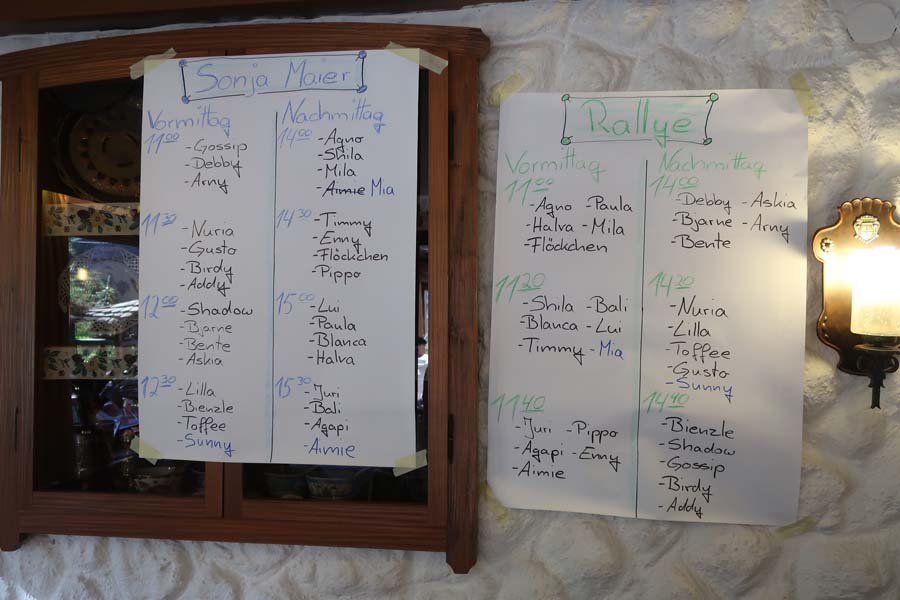 Sonja Maier
Vormittag
11 00
- Gossip
- Debby
- Arny
11 30
- Nuria
- Gusto
- Birdy
- Addy
12 00
- Shadow
- Bjarne
- Bente
- Askia
12 30
- Lilla
- Bienzle
- Toffee
- Sunny
Nachmittag
14 00
- Agno
- Shila
- Mila
- Aimie Mia
14 30
- Timmy
- Enny
- Flöckchen
- Pippo
15 00
- Lui
- Paula
- Blanca
- Halva
15 30
- Juri
- Bali
- Agapi
- Aimie
Rallye
Vormittag
11 00
- Agno - Paula
- Halva - Mila
- Flöckchen
11 20
- Shila - Bali
- Blanca - Lui
- Timmy - Mia
11 40
- Juri - Pippo
- Agapi - Enny
- Aimie
Nachmittag
14 00
- Debby - Askia
- Bjarne - Arny
- Bente
14 20
- Nuria
- Lilla
- Toffee
- Gusto
- Sunny
14 40
- Bienzle
- Shadow
- Gossip
- Birdy
- Addy